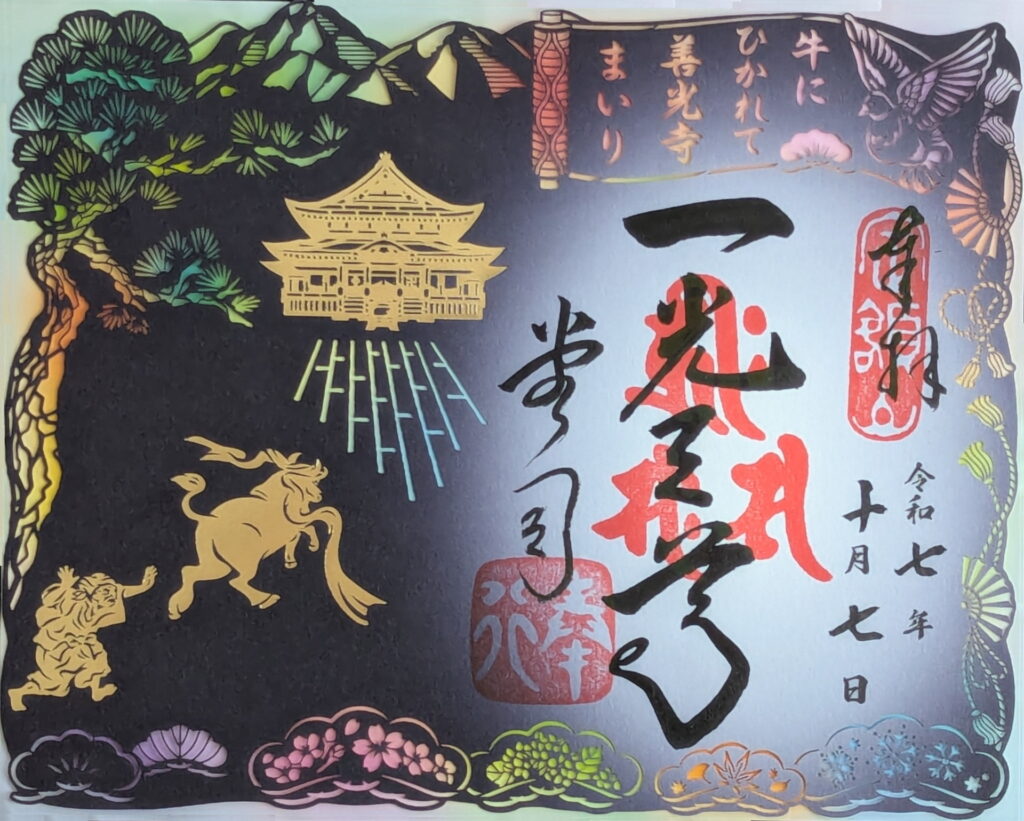 牛に
ひかれて
善光寺
まいり
奉拝
令和七年
十月七日
一光三尊